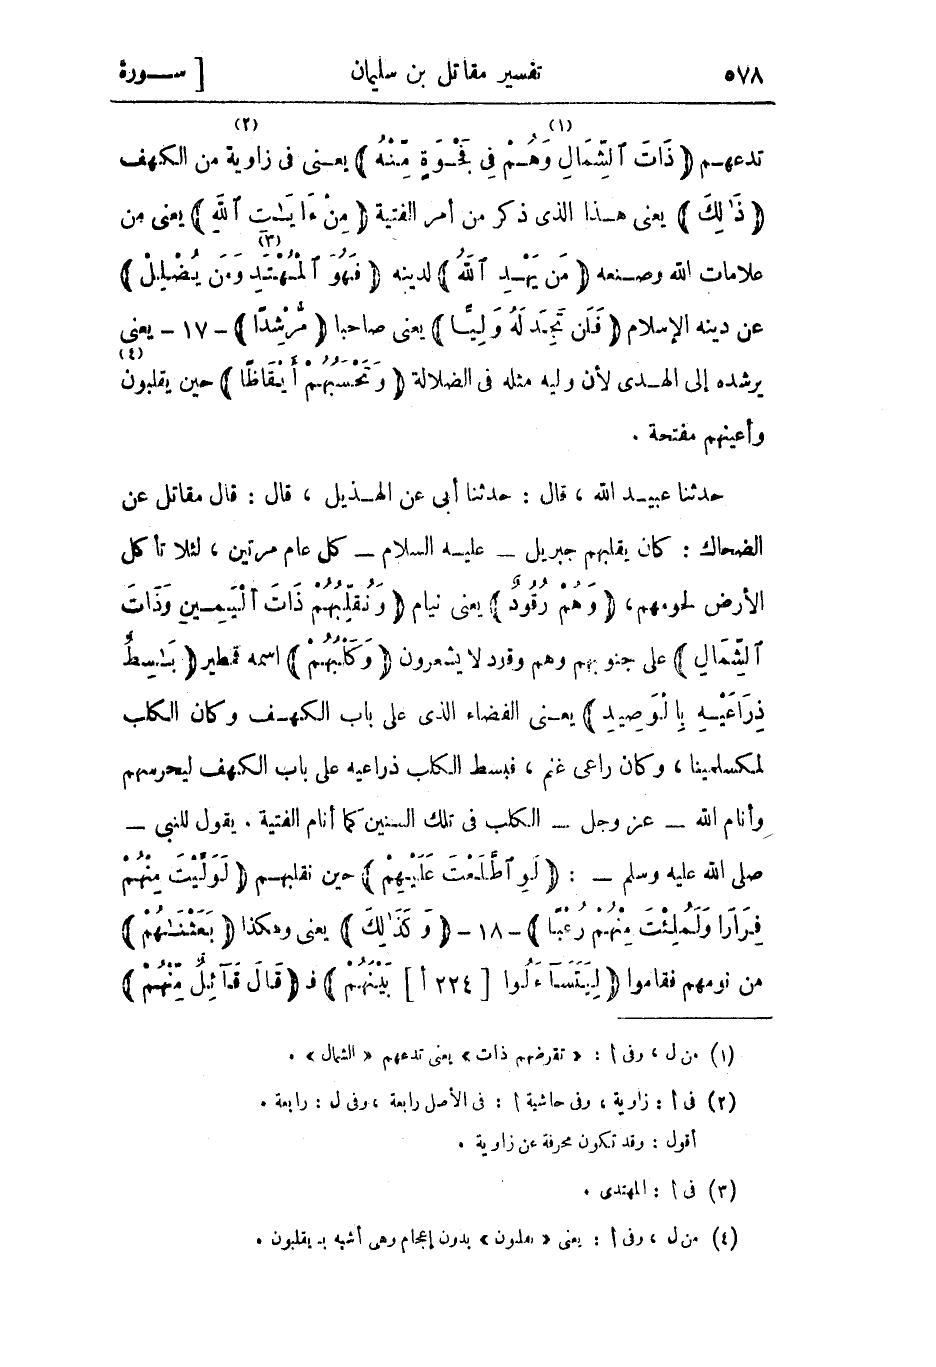 ٥٧٨ تفسير مقاتل بن سليمان [ ســورة
(١) (٢)
تدعهـم ﴿ ذَاتَ ٱلشِّمَالِ وَهُـمْ فِى فَجْـوَةٍ مِّنْهُ ﴾ يعـنى فى زاوية من الكهف
﴿ ذَٰلِكَ ﴾ يعنى هـذا الذى ذكر من أمر الفتية ﴿ مِنْ ءَايَـٰتِ ٱللَّهِ ﴾ يعنى من
(٣)
علامات الله وصـنعه ﴿ مَن يَهْـدِ ٱللَّهُ ﴾ لدينه ﴿ فَهُوَ ٱلْمُهْتَدِ وَمَن يُضْلِلْ ﴾
عن دينه الإسلام ﴿ فَلَن تَجِدَ لَهُ وَلِيًّا ﴾ يعنى صاحبا ﴿ مُّرْشِدًا ﴾ - ١٧ - يعنى
(٤)
يرشده إلى الهـدى لأن وليه مثله فى الضلالة ﴿ وَتَحْسَبُهُمْ أَيْقَاظًا ﴾ حين يقلبون
وأعينهم مفتحة .
حدثنا عبيـد الله ، قال : حدثنا أبى عن الهـذيل ، قال : قال مقاتل عن
الضحاك : كان يقلبهم جبريل — عليـه السلام — كل عام مرتين ، لئلا تأكل
الأرض لحومهم، ﴿ وَهُمْ رُقُودٌ ﴾ يعنى نيام ﴿ وَنُقَلِّبُهُمْ ذَاتَ ٱلْيَمِـينِ وَذَاتَ
ٱلشِّمَالِ ﴾ على جنوبهم وهم وقرد لا يشعرون ﴿ وَكَلْبُهُمْ ﴾ اسمه قمطير ﴿ بَـٰسِطٌ
ذِرَاعَيْـهِ بِالْوَصِيدِ ﴾ يعـنى الفضاء الذى على باب الكهـف وكان الكلب
لمكسلمينا ، وكان راعى غنم ، فبسط الكلب ذراعيه على باب الكهف ليحرسهم
وأنام الله — عز وجل — الكلب فى تلك السنين كما أنام الفتية . يقول للنبى —
صلى الله عليه وسلم — : ﴿ لَوِ ٱطَّلَعْتَ عَلَيْهِمْ ﴾ حين نقلبهـم ﴿ لَوَلَّيْتَ مِنْهُمْ
فِرَارًا وَلَمُلِئْتَ مِنْهُمْ رُعْبًا ﴾ - ١٨ - ﴿ وَكَذَٰلِكَ ﴾ يعنى وهكذا ﴿ بَعَثْنَـٰهُمْ ﴾
من نومهم فقاموا ﴿ لِيَتَسَآءَلُوا [ ٢٢٤ أ ] بَيْنَهُمْ ﴾ فـ ﴿ قَالَ قَآئِلٌ مِّنْهُمْ ﴾
(١) من ل ، وفى أ : « تقرضهم ذات » يعنى تدعهم « الشمال » .
(٢) فى أ : زاوية ، وفى حاشية أ : فى الأصل رابعة ، وفى ل : رابعة .
أقول : وقد تكون محرفة عن زاوية .
(٣) فى أ : المهتدى .
(٤) من ل ، وفى أ : يعنى « ٮعلٮون » بدون إعجام وهى أشبه بـ يقلبون .